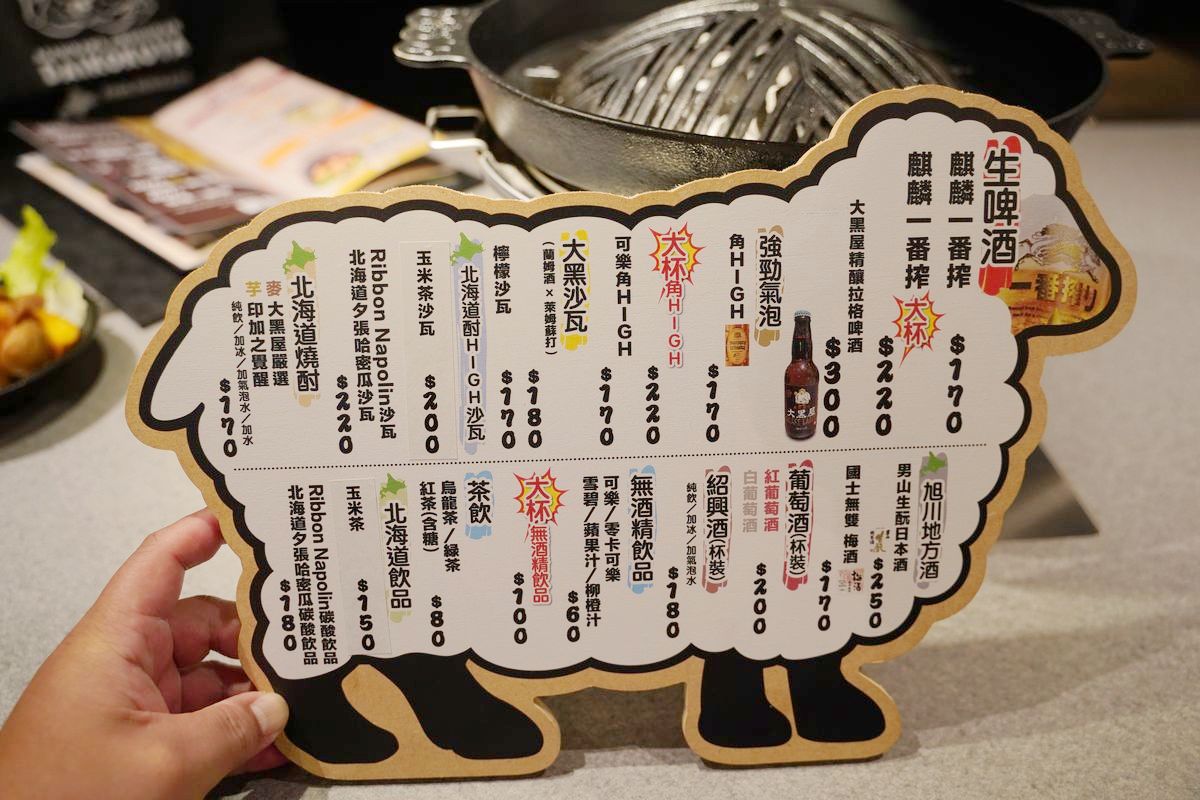 生啤酒
麒麟一番搾 $170
麒麟一番搾 大杯 $220
大黑屋精釀拉格啤酒 $300
大黑屋
強勁氣泡
角HIGH $170
大杯角HIGH $220
可樂角HIGH $170
大黑沙瓦
(蘭姆酒×萊姆蘇打) $180
檸檬沙瓦 $170
北海道酎HIGH沙瓦
玉米茶沙瓦 $200
Ribbon Napolin沙瓦
北海道夕張哈密瓜沙瓦 $220
北海道燒酎
麥 大黑屋嚴選
芋 印加之覺醒
純飲/加冰/加氣泡水/加水 $170
旭川地方酒
男山生酛日本酒 $250
國士無雙 梅酒 $170
葡萄酒(杯裝)
紅葡萄酒
白葡萄酒 $200
紹興酒(杯裝)
純飲/加冰/加氣泡水 $180
無酒精飲品
可樂/零卡可樂
雪碧/蘋果汁/柳橙汁 $60
大杯無酒精飲品 $100
茶飲
烏龍茶/綠茶
紅茶(含糖) $80
北海道飲品
玉米茶 $150
Ribbon Napolin碳酸飲品
北海道夕張哈密瓜碳酸飲品 $180